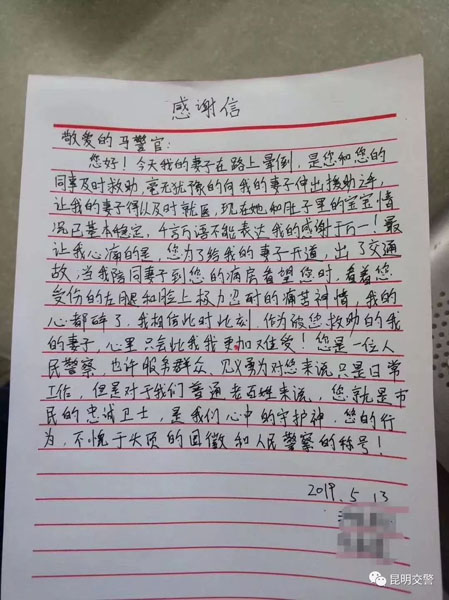 感谢信
敬爱的马警官:
您好！今天我的妻子在路上晕倒，是您和您的
同事及时救助，毫无犹豫的向我的妻子伸出援助之手，
让我的妻子得以及时就医，现在她和肚子里的宝宝情
况已基本稳定，千言万语不能表达我的感谢于万一！最
让我心痛的是，您为了给我的妻子开道，出了交通事
故，当我陪同妻子到您的病房看望您时，看着您
受伤的左腿和脸上极力忍耐的痛苦神情，我的
心都碎了，我相信此时此刻，作为被您救助的我
的妻子，心里只会比我更加难受！您是一位人
民警察，也许服务群众，见义勇为对您来说只是日常
工作，但是对于我们普通老百姓来说，您就是市
民的忠诚卫士，是我们心中的守护神，您的行
为，不愧于头顶的国徽和人民警察的称号！
2019.5.13
昆明交警